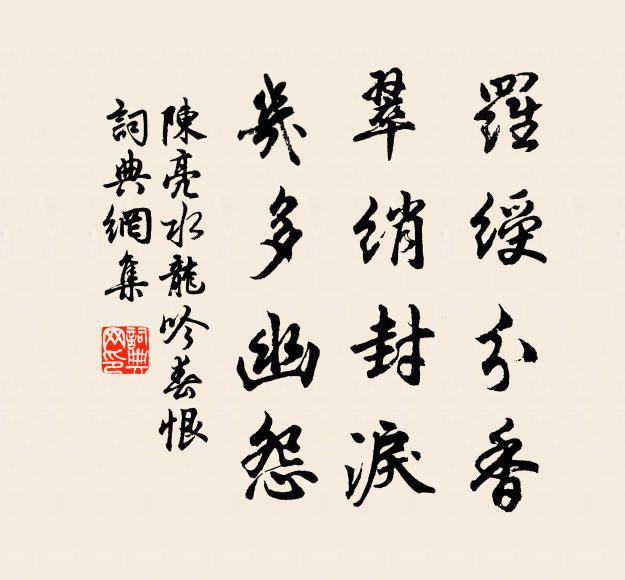 羅綬分香
翠綃封淚
幾多幽怨
陳亮水龍吟春恨
詞典網集
詞典网印